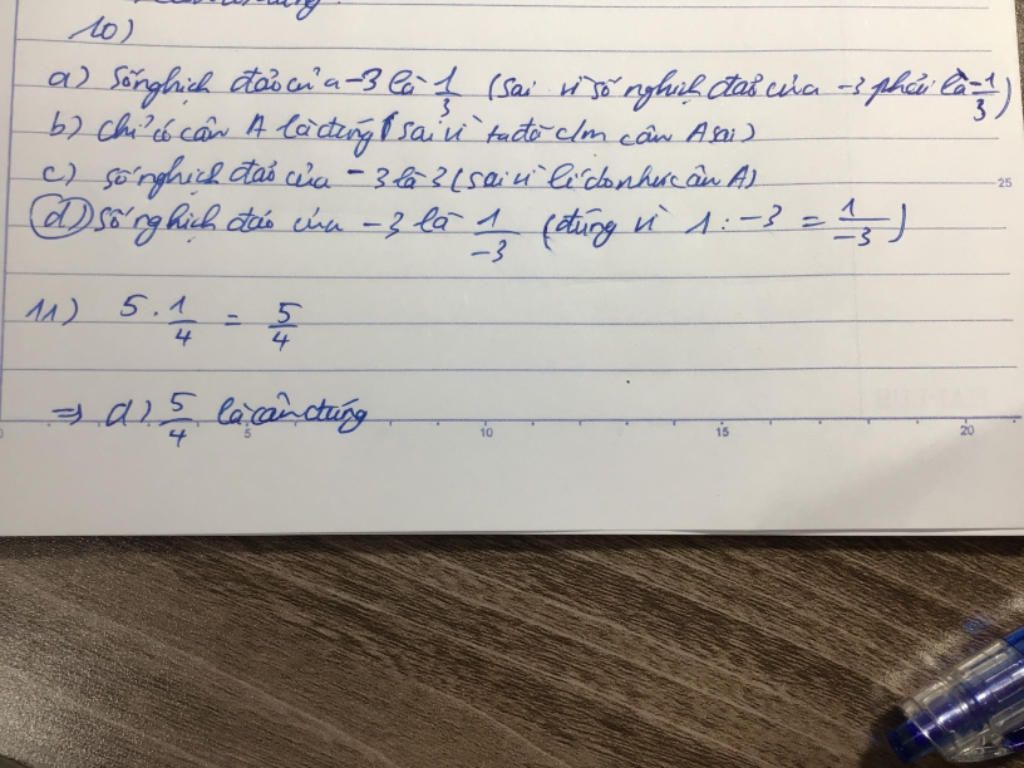 10)
a) Số nghịch đảo của -3 là 1/3 (sai vì số nghịch đảo của -3 phải là -1/3)
b) chỉ có câu A là đúng (sai vì ta đã c/m câu A sai)
c) số nghịch đảo của -3 là 3 (sai vì lí do như câu A)
d) Số nghịch đảo của -3 là 1/-3 (đúng vì 1 : -3 = 1/-3)
11) 5 . 1/4 = 5/4
⇒ d) 5/4 là câu đúng
0 5 10 15 20
25